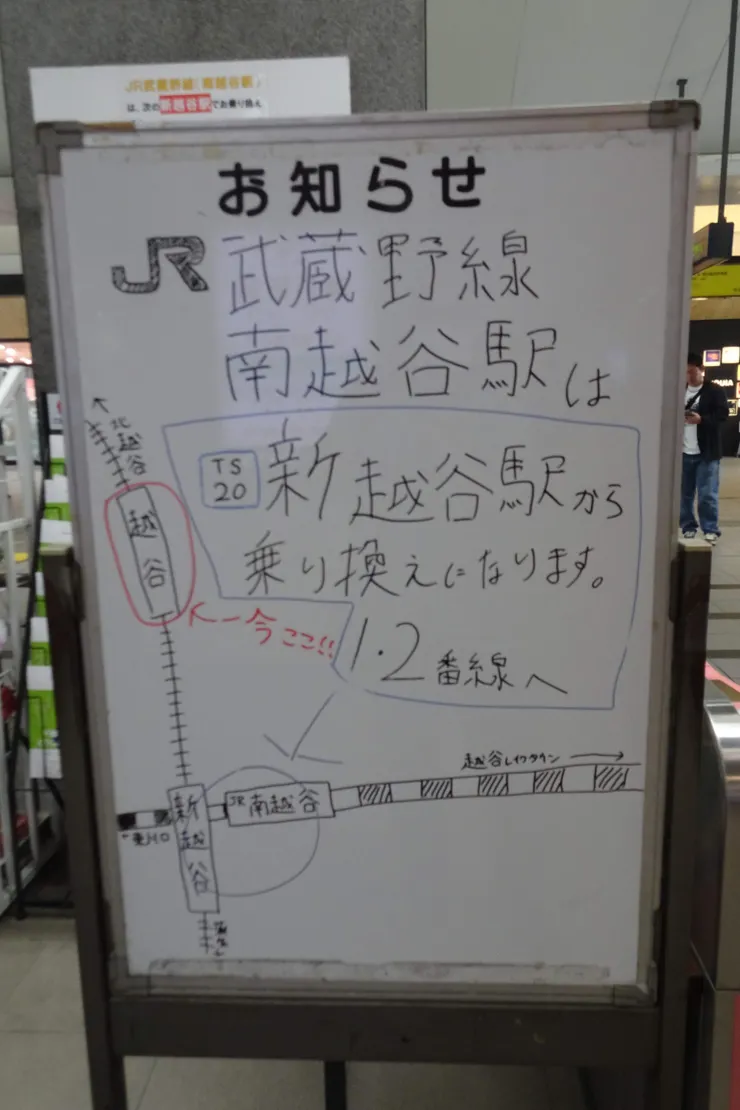 JR武蔵野線「南越谷駅」
は、次の新越谷駅でお乗り換え
お知らせ
JR 武蔵野線
南越谷駅は
TS
20
新越谷駅から
乗り換えになります。
1・2番線へ
北越谷
越谷
←今ココ!!
越谷レイクタウン →
JR南越谷
新越谷
←東川口